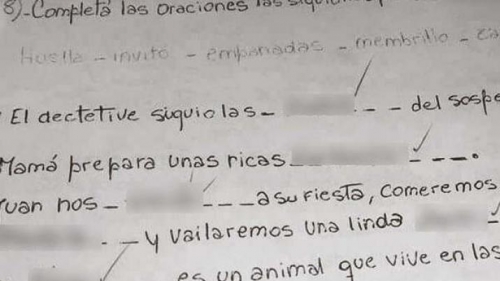 8)-Completá las oraciones las
Huella - invitó - empanadas - membrillo -
El dectetive siquio las - - - del sospe
Mamá prepara unas ricas - - -.
uan nos - - - - a su fiesta, comeremos
. - - y vailaremos una linda
es un animal que vive en las